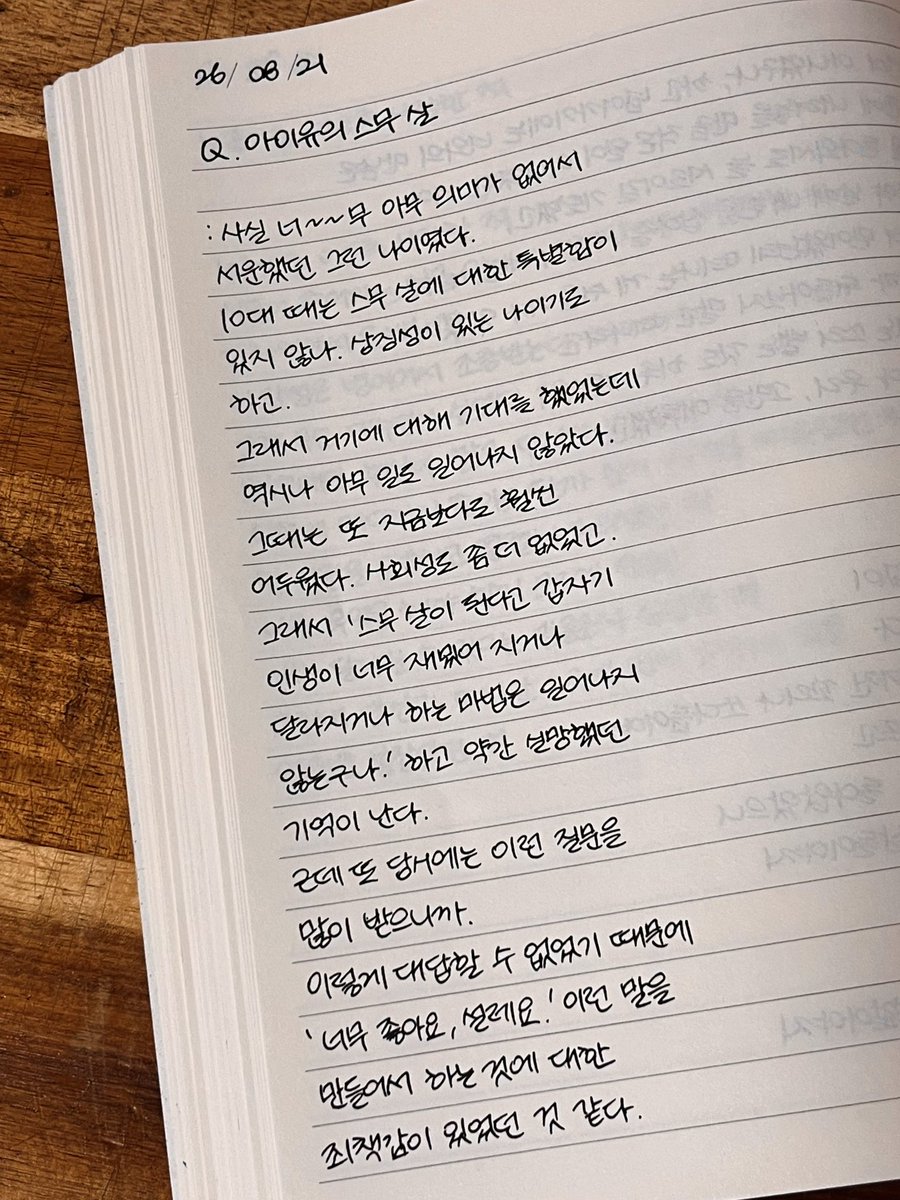 26/ 08 /21
Q. 아이유의 스무 살
: 사실 너~~무 아무 의미가 없어서
서운했던 그런 나이였다.
10대 때는 스무 살에 대한 특별함이
있지 않나. 상징성이 있는 나이기도
하고.
그래서 거기에 대해 기대를 했었는데
역시나 아무 일도 일어나지 않았다.
그때는 또 지금보다도 훨씬
어두웠다. 사회성도 좀 더 없었고.
그래서 '스무 살이 된다고 갑자기
인생이 너무 재밌어 지거나
달라지거나 하는 마법은 일어나지
않는구나.' 하고 약간 실망했던
기억이 난다.
근데 또 당시에는 이런 질문을
많이 받으니까.
이렇게 대답할 수 없었기 때문에
'너무 좋아요, 설레요.' 이런 말을
만들어서 하는 것에 대한
죄책감이 있었던 것 같다.